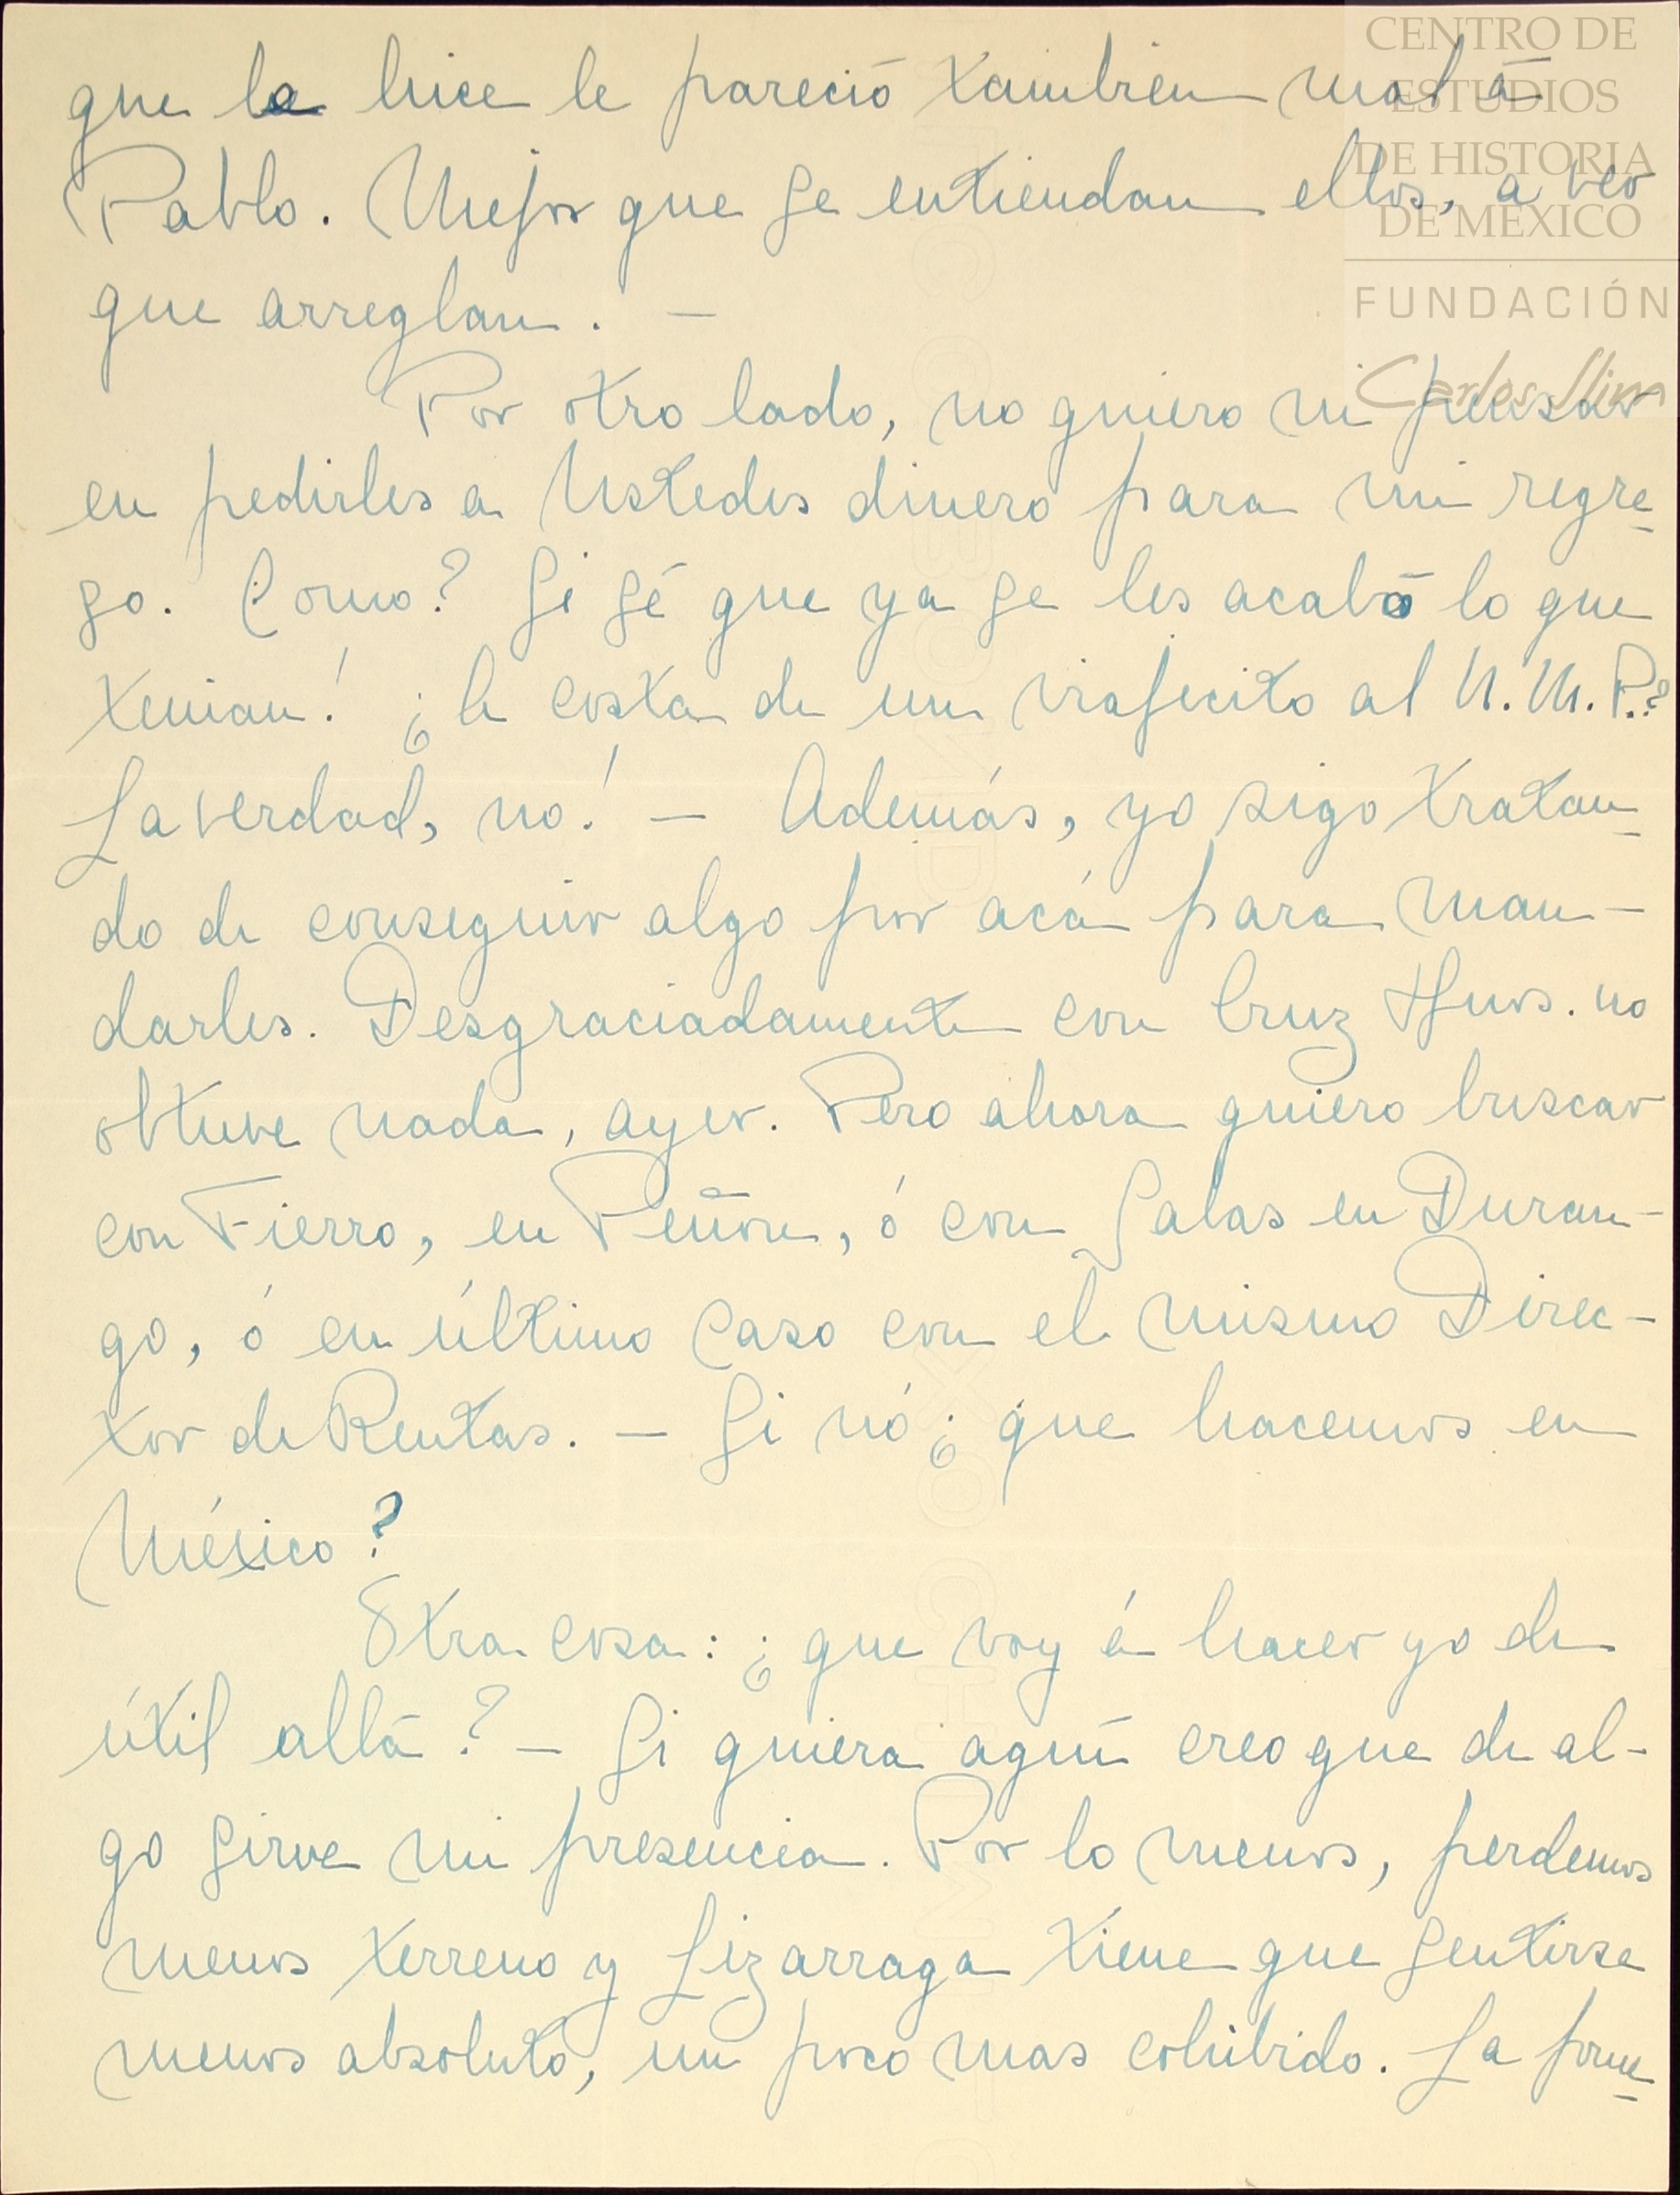 CENTRO DE
ESTUDIOS
DE HISTORIA
DE MÉXICO
FUNDACIÓN
Carlos Slim
que le hice le pareció tambien mal á
Pablo. Mejor que se entiendan ellos, a ver
que arreglan. —
Por otro lado, no quiero ni pensar
en pedirles a Ustedes dinero para mi regre-
so. Como? Si sé que ya se les acabó lo que
tenian! ¿A costa de un viajecito al M. M. P.?
La verdad, no! — Además, yo sigo tratan-
do de conseguir algo por acá para man-
darles. Desgraciadamente con Cruz Hnos. no
obtuve nada, ayer. Pero ahora quiero buscar
con Fierro, en Peñon, ó con Salas en Duran-
go, ó en último caso con el mismo Direc-
tor de Rentas. — Si nó ¿que hacemos en
México?
Otra cosa: ¿que voy á hacer yo de
útil allá? — Si quiera aquí creo que de al-
go sirve mi presencia. Por lo menos, perdemos
menos terreno y Lizarraga tiene que sentirse
menos absoluto, un poco mas cohibido. La